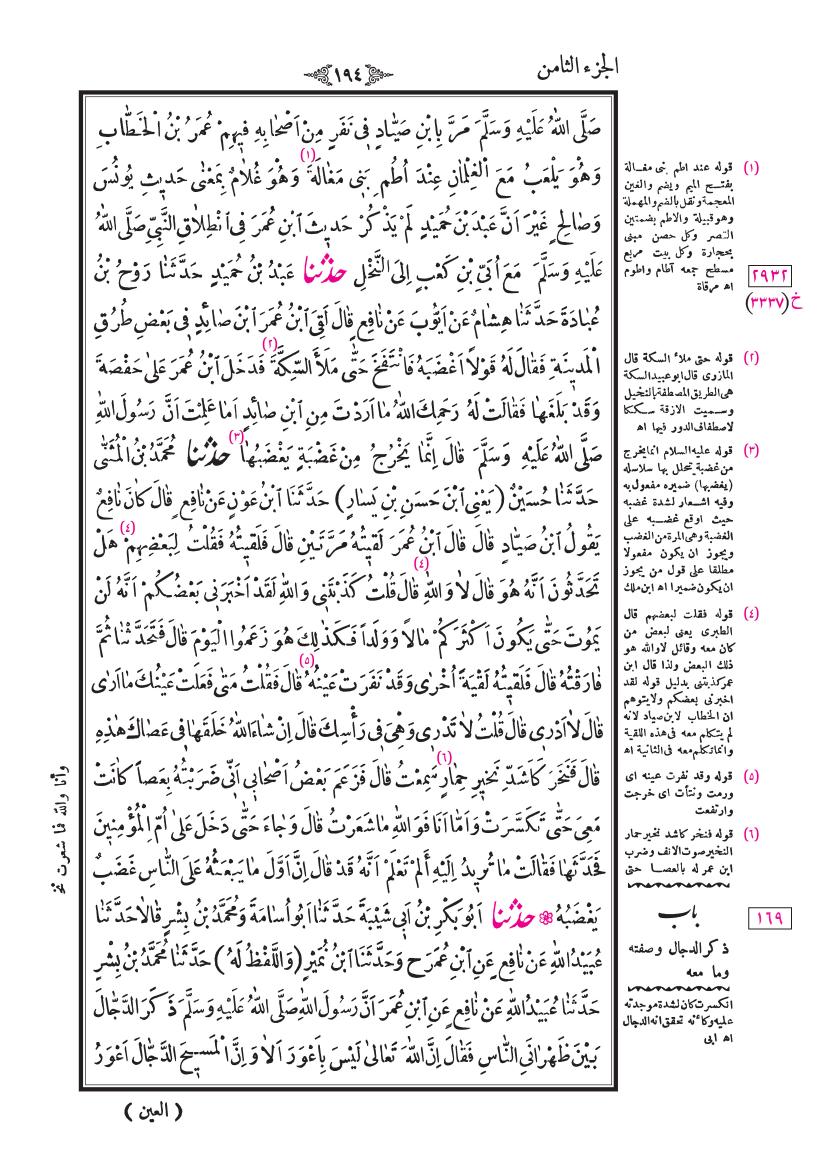 الجزء الثامن
١٩٤
صَلَّى اللهُ عَلَيْهِ وَسَلَّمَ مَرَّ بِابْنِ صَيَّادٍ فِى نَفَرٍ مِنْ اَصْحَابِهِ فِيهِمْ عُمَرُ بْنُ الْخَطَّابِ
وَهُوَ يَلْعَبُ مَعَ الْغِلْمَانِ عِنْدَ اُطُمِ بَنِى مَغَالَةَ (١) وَهُوَ غُلَامٌ بِمَعْنٰى حَديثِ يُونُسَ
وَصَالِحٍ غَيْرَ اَنَّ عَبْدَ بْنَ حُمَيْدٍ لَمْ يَذْكُرْ حَديثَ ابْنِ عُمَرَ فِى انْطِلَاقِ النَّبِيِّ صَلَّى اللهُ
عَلَيْهِ وَسَلَّمَ مَعَ اُبَيِّ بْنِ كَعْبٍ اِلَى النَّخْلِ حَدَّثَنَا عَبْدُ بْنُ حُمَيْدٍ حَدَّثَنَا رَوْحُ بْنُ
عُبَادَةَ حَدَّثَنَا هِشَامٌ عَنْ اَيُّوبَ عَنْ نَافِعٍ قَالَ لَقِىَ ابْنُ عُمَرَ ابْنَ صَائِدٍ فِى بَعْضِ طُرُقِ
الْمَدينَةِ فَقَالَ لَهُ قَوْلًا اَغْضَبَهُ فَانْتَفَخَ حَتّٰى مَلَأَ السِّكَّةَ (٢) فَدَخَلَ ابْنُ عُمَرَ عَلٰى حَفْصَةَ
وَقَدْ بَلَغَهَا فَقَالَتْ لَهُ رَحِمَكَ اللهُ مَا اَرَدْتَ مِنِ ابْنِ صَائِدٍ اَمَا عَلِمْتَ اَنَّ رَسُولَ اللهِ
صَلَّى اللهُ عَلَيْهِ وَسَلَّمَ قَالَ اِنَّمَا يَخْرُجُ مِنْ غَضْبَةٍ يَغْضَبُهَا (٣) حَدَّثَنَا مُحَمَّدُ بْنُ الْمُثَنّٰى
حَدَّثَنَا حُسَيْنٌ (يَعْنِى ابْنَ حَسَنِ بْنِ يَسَارٍ) حَدَّثَنَا ابْنُ عَوْنٍ عَنْ نَافِعٍ قَالَ كَانَ نَافِعٌ
يَقُولُ ابْنُ صَيَّادٍ قَالَ قَالَ ابْنُ عُمَرَ لَقِيتُهُ مَرَّتَيْنِ قَالَ فَلَقِيتُهُ فَقُلْتُ لِبَعْضِهِمْ (٤) هَلْ
تَحَدَّثُونَ اَنَّهُ هُوَ قَالَ لَا وَاللهِ (٤) قَالَ قُلْتُ كَذَبْتَنِى وَاللهِ لَقَدْ اَخْبَرَنِى بَعْضُكُمْ اَنَّهُ لَنْ
يَمُوتَ حَتّٰى يَكُونَ اَكْثَرَكُمْ مَالًا وَوَلَداً فَكَذٰلِكَ هُوَ زَعَمُوا الْيَوْمَ قَالَ فَتَحَدَّثْنَا ثُمَّ
فَارَقْتُهُ قَالَ فَلَقِيتُهُ لَقْيَةً اُخْرٰى وَقَدْ نَفَرَتْ عَيْنُهُ (٥) قَالَ فَقُلْتُ مَتٰى فَعَلَتْ عَيْنُكَ مَا اَرٰى
قَالَ لَا اَدْرِى قَالَ قُلْتُ لَا تَدْرِى وَهِىَ فِى رَأْسِكَ قَالَ اِنْ شَاءَ اللهُ خَلَقَهَا فِى عَصَاكَ هٰذِهِ
قَالَ فَنَخَرَ كَاَشَدِّ نَخيرِ حِمَارٍ (٦) سَمِعْتُ قَالَ فَزَعَمَ بَعْضُ اَصْحَابِى اَنِّى ضَرَبْتُهُ بِعَصاً كَانَتْ
مَعِىَ حَتّٰى تَكَسَّرَتْ وَاَمَّا اَنَا فَوَاللهِ مَا شَعَرْتُ قَالَ وَجَاءَ حَتّٰى دَخَلَ عَلٰى اُمِّ الْمُؤْمِنينَ
فَحَدَّثَهَا فَقَالَتْ مَا تُريدُ اِلَيْهِ اَلَمْ تَعْلَمْ اَنَّهُ قَدْ قَالَ اِنَّ اَوَّلَ مَا يَبْعَثُهُ عَلَى النَّاسِ غَضَبٌ
يَغْضَبُهُ ❁ حَدَّثَنَا اَبُو بَكْرِ بْنُ اَبِى شَيْبَةَ حَدَّثَنَا اَبُو اُسَامَةَ وَمُحَمَّدُ بْنُ بِشْرٍ قَالَا حَدَّثَنَا
عُبَيْدُ اللهِ عَنْ نَافِعٍ عَنِ ابْنِ عُمَرَ ح وَحَدَّثَنَا ابْنُ نُمَيْرٍ (وَاللَّفْظُ لَهُ) حَدَّثَنَا مُحَمَّدُ بْنُ بِشْرٍ
حَدَّثَنَا عُبَيْدُ اللهِ عَنْ نَافِعٍ عَنِ ابْنِ عُمَرَ اَنَّ رَسُولَ اللهِ صَلَّى اللهُ عَلَيْهِ وَسَلَّمَ ذَكَرَ الدَّجَّالَ
بَيْنَ ظَهْرَانَىِ النَّاسِ فَقَالَ اِنَّ اللهَ تَعَالٰى لَيْسَ بِاَعْوَرَ اَلَا وَاِنَّ الْمَسيحَ الدَّجَّالَ اَعْوَرُ
( العين )
(١) قوله عند اطم بنى مغالة
بفتح الميم وبضم والغين
المعجمة ونقل بالضم والمهملة
وهو قبيلة والاطم بضمتين
القصر وكل حصن مبنى
بحجارة وكل بيت مربع
مسطح جمعه آطام واطوم
اه مرقاة
٢٩٣٢
خ (٣٣٣٧)
(٢) قوله حتى ملأ السكة قال
المازرى قال ابو عبيد السكة
هى الطريق المصطفة بالنخيل
وسميت الازقة سككا
لاصطفاف الدور فيها اه
(٣) قوله عليه السلام انما يخرج
من غضبة تتحلل بها سلاسله
(يغضبها) ضميره مفعول به
وفيه اشعار لشدة غضبه
حيث اوقع غضبه على
الغضبة وهى المرة من الغضب
ويجوز ان يكون مفعولا
مطلقا على قول من يجوز
ان يكون ضميرا اه ابن ملك
(٤) قوله فقلت لبعضهم قال
الطبرى يعنى لبعض من
كان معه وقائل لا والله هو
ذلك البعض ولذا قال ابن
عمر كذبتنى بدليل قوله لقد
اخبرنى بعضكم ولا يتوهم
ان الخطاب لابن صياد لانه
لم يتكلم معه فى هذه اللقية
وانما تكلم معه فى الثانية اه
(٥) قوله وقد نفرت عينه اى
ورمت ونتأت اى خرجت
وارتفعت
(٦) قوله فنخر كاشد نخير حمار
النخير صوت الانف وضرب
ابن عمر له بالعصا حتى
باب
١٦٩
ذكر الدجال وصفته
وما معه
انكسرت كان لشدة موجدته
عليه وكأنه تحقق انه الدجال
اه ابى
وأنا والله فما شعرت نخ